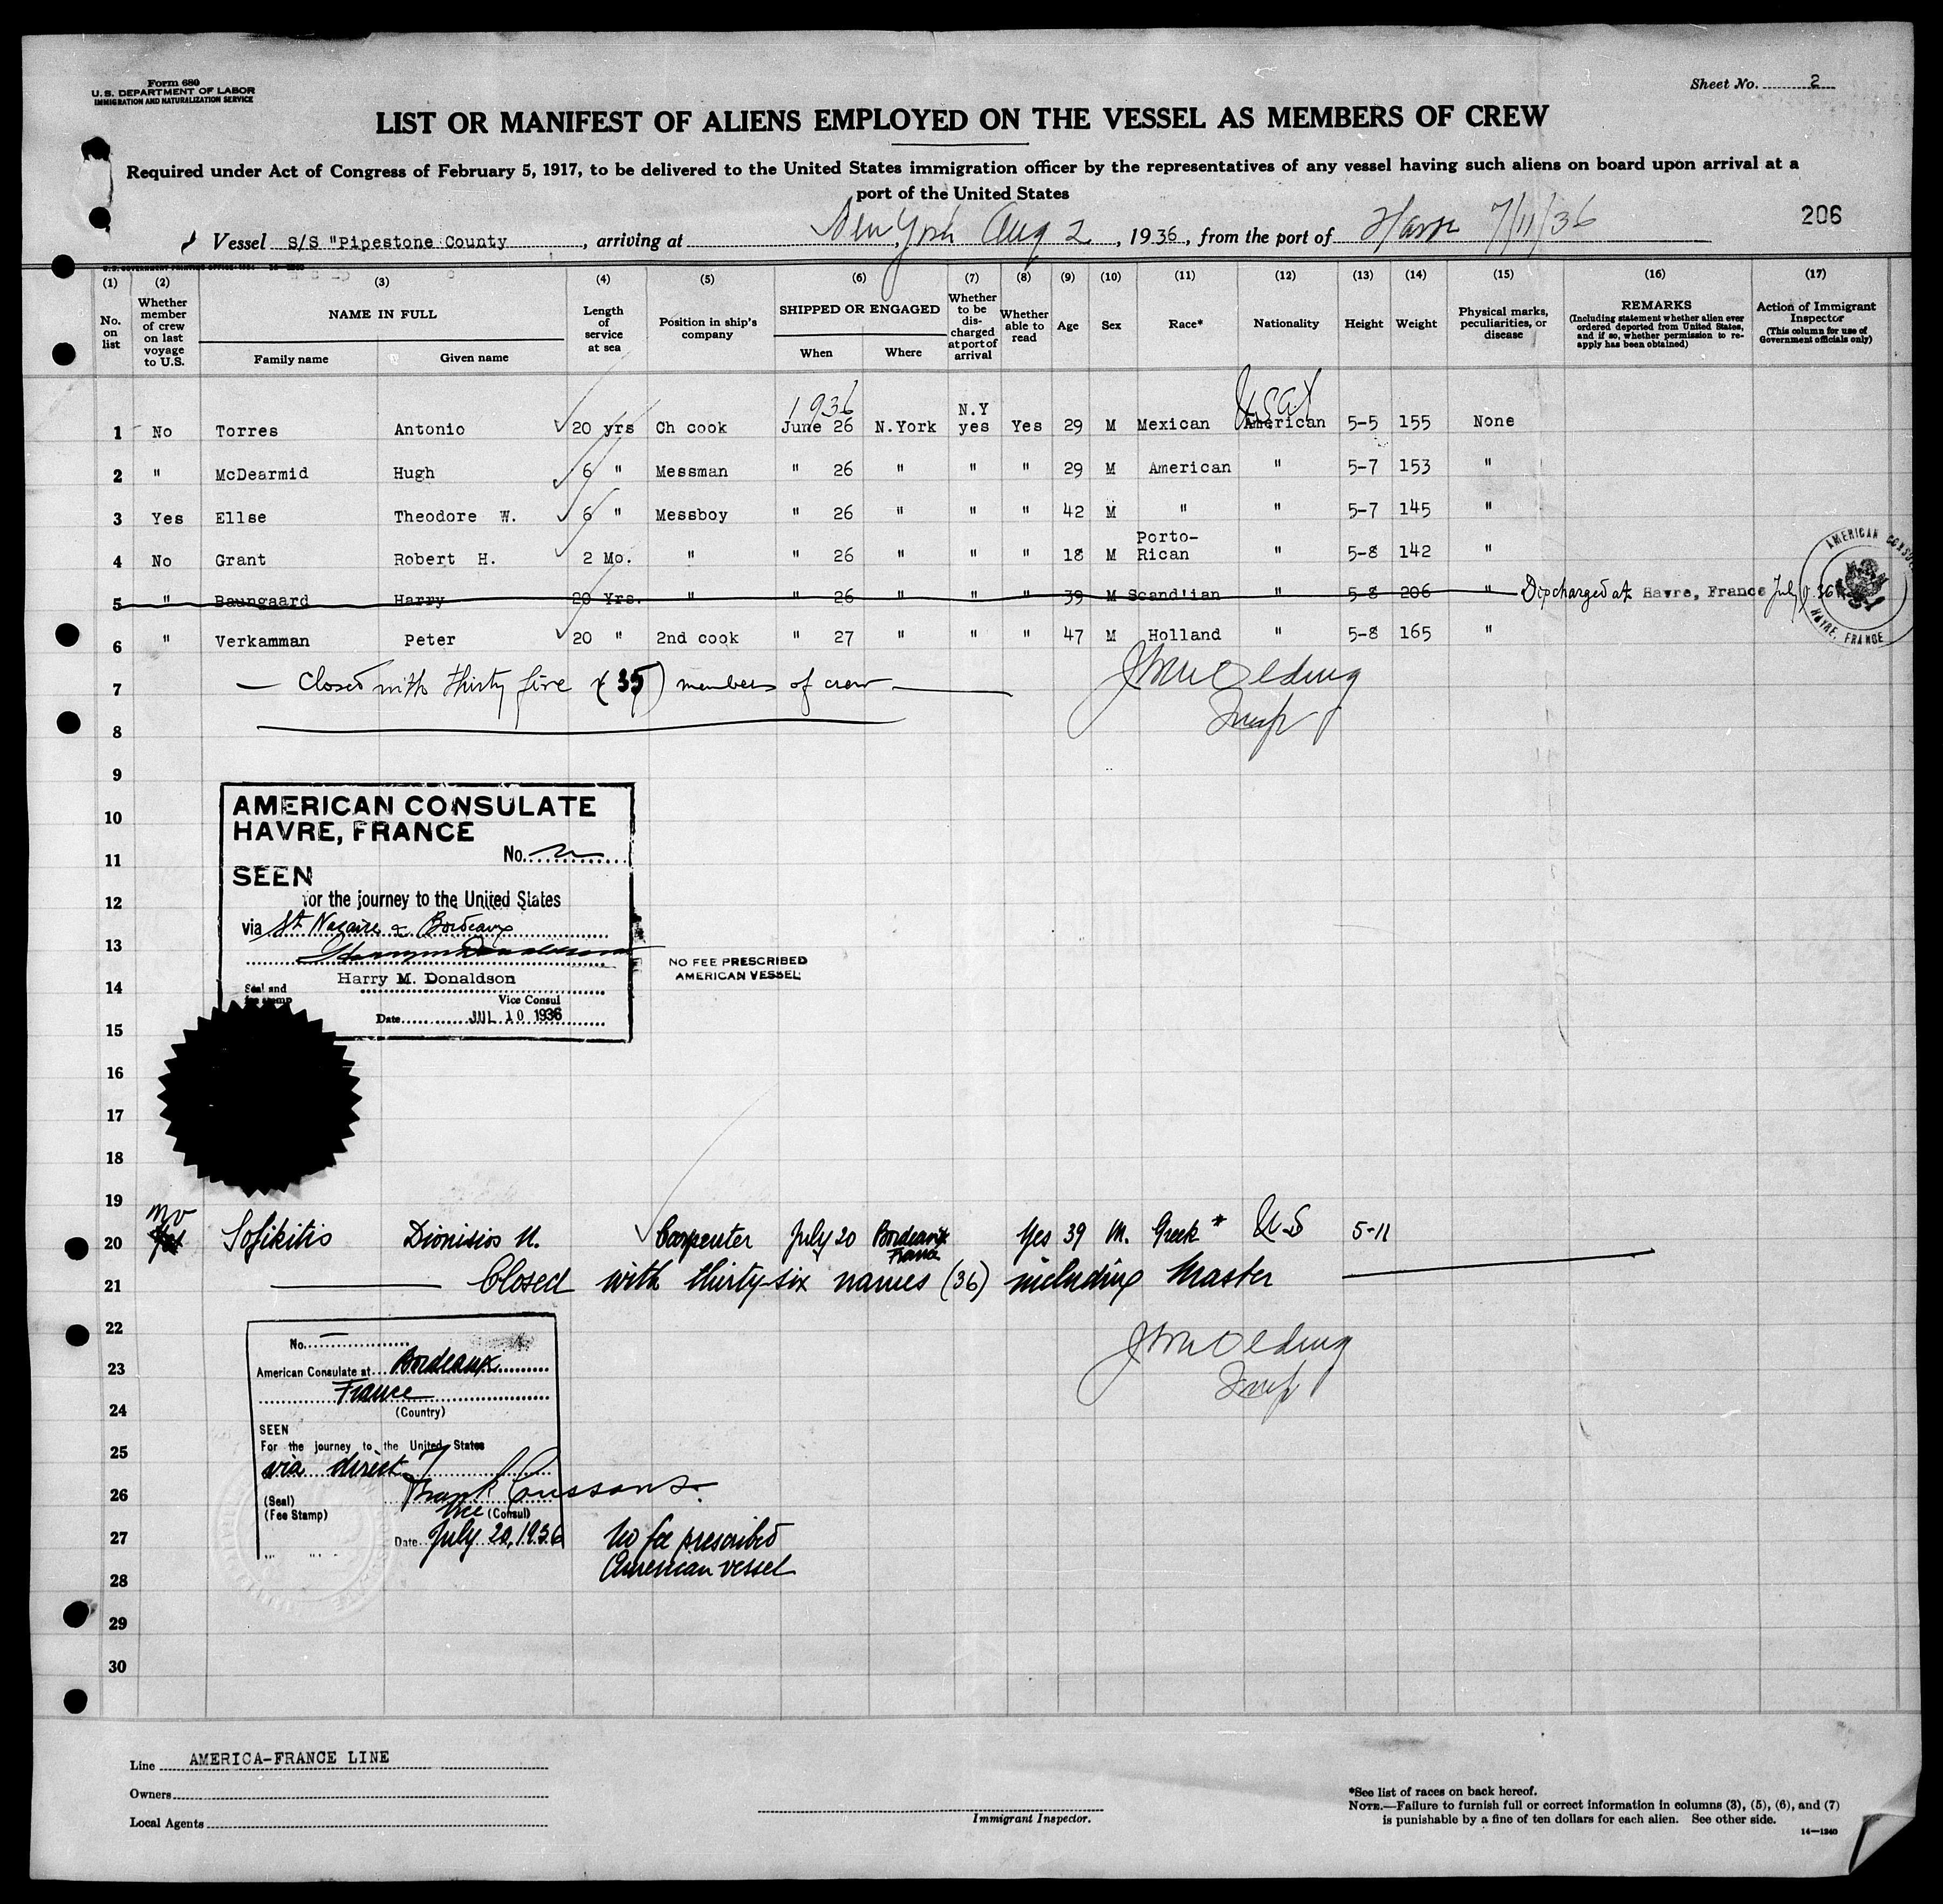 Form 680
U. S. DEPARTMENT OF LABOR
IMMIGRATION AND NATURALIZATION SERVICE
Sheet No. 2
LIST OR MANIFEST OF ALIENS EMPLOYED ON THE VESSEL AS MEMBERS OF CREW
Required under Act of Congress of February 5, 1917, to be delivered to the United States immigration officer by the representatives of any vessel having such aliens on board upon arrival at a
port of the United States
206
Vessel S/S "Pipestone County, arriving at New York Aug 2, 1936, from the port of Havre 7/11/36
(1) (2) (3) (4) (5) (6) (7) (8) (9) (10) (11) (12) (13) (14) (15) (16) (17)
No. on list
Whether member of crew on last voyage to U.S.
NAME IN FULL
Family name
Given name
Length of service at sea
Position in ship's company
SHIPPED OR ENGAGED
When
Where
Whether to be discharged at port of arrival
Whether able to read
Age
Sex
Race*
Nationality
Height
Weight
Physical marks, peculiarities, or disease
REMARKS
(Including statement whether alien ever ordered deported from United States, and if so, whether permission to re-apply has been obtained)
Action of Immigrant Inspector
(This column for use of Government officials only)
1936 N.Y U.S.A.
1 No Torres Antonio 20 yrs Ch cook June 26 N.York yes Yes 29 M Mexican American 5-5 155 None
2 " McDearmid Hugh 6 " Messman " 26 " " " 29 M American " 5-7 153 "
3 Yes Ellse Theodore W. 6 " Messboy " 26 " " " 42 M " " 5-7 145 "
4 No Grant Robert H. 2 Mo. " " 26 " " " 18 M Porto-Rican " 5-8 142 "
5 " Baungaard Harry 20 Yrs. " " 26 " " " 39 M Scand'ian " 5-8 206 " Discharged at Havre, France July 10.36
AMERICAN CONSULATE
HAVRE, FRANCE
6 " Verkamman Peter 20 " 2nd cook " 27 " " " 47 M Holland " 5-8 165 "
7 Closed with thirty five (35) members of crew
Insp
8
9
10
11
12
13
14
15
16
17
18
19
AMERICAN CONSULATE
HAVRE, FRANCE
No.
SEEN
for the journey to the United States
via St Nazaire & Bordeaux
Harry M. Donaldson
Seal and
fee stamp
Vice Consul
Date JUL 10 1936
NO FEE PRESCRIBED
AMERICAN VESSEL
20 No Sofikitis Dionisios N. Carpenter July 20 Bordeaux France Yes 39 M. Greek * U.S 5-11
21 Closed with thirty-six names (36) including Master
Insp
22
23
24
25
26
27
28
29
30
No.
American Consulate at Bordeaux
France
(Country)
SEEN
For the journey to the United States
via direct
Frank Cussans
(Seal)
(Fee Stamp)
Vice (Consul)
Date July 20, 1936
No fee prescribed
American vessel
Line AMERICA-FRANCE LINE
Owners
Local Agents
Immigrant Inspector.
*See list of races on back hereof.
NOTE.—Failure to furnish full or correct information in columns (3), (5), (6), and (7)
is punishable by a fine of ten dollars for each alien. See other side.
14—1240